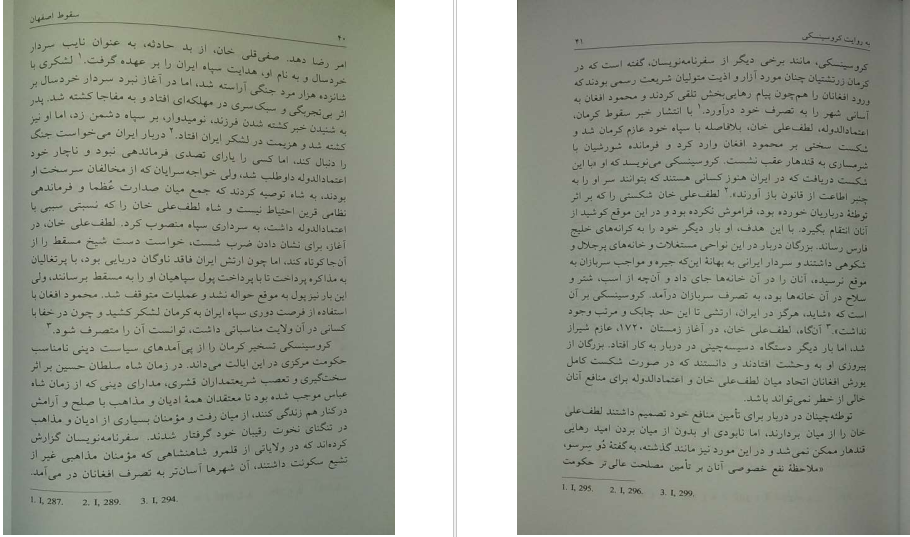 سقوط اصفهان
۴۰
امر رضا دهد. صفی‌قلی خان، از بد حادثه، به عنوان نایب سردار
خردسال و به نام او، هدایت سپاه ایران را بر عهده گرفت.۱ لشکری با
شانزده هزار مرد جنگی آراسته شد، اما در آغاز نبرد سردار خردسال بر
اثر بی‌تجربگی و سبک‌سری در مهلکه‌ای افتاد و به مفاجا کشته شد. پدر
به شنیدن خبر کشته شدن فرزند، نومیدوار، بر سپاه دشمن زد، اما او نیز
کشته شد و هزیمت در لشکر ایران افتاد.۲ دربار ایران می‌خواست جنگ
را دنبال کند، اما کسی را یارای تصدی فرماندهی نبود و ناچار خود
اعتمادالدوله داوطلب شد، ولی خواجه‌سرایان که از مخالفان سرسخت او
بودند، به شاه توصیه کردند که جمع میان صدارت عُظما و فرماندهی
نظامی قرین احتیاط نیست و شاه لطف‌علی خان را که نسبتی سببی با
اعتمادالدوله داشت، به سرداری سپاه منصوب کرد. لطف‌علی خان، در
آغاز، برای نشان دادن ضرب شست، خواست دست شیخ مسقط را از
آن‌جا کوتاه کند، اما چون ارتش ایران فاقد ناوگان دریایی بود، با پرتغالیان
به مذاکره پرداخت تا با پرداخت پول سپاهیان او را به مسقط برسانند، ولی
این بار نیز پول به موقع حواله نشد و عملیات متوقف شد. محمود افغان با
استفاده از فرصت دوری سپاه ایران به کرمان لشکر کشید و چون در خفا با
کسانی در آن ولایت مناسباتی داشت، توانست آن را متصرف شود.۳
کروسینسکی تسخیر کرمان را از پی‌آمدهای سیاست دینی نامناسب
حکومت مرکزی در این ایالت می‌داند. در زمان شاه سلطان حسین بر اثر
سخت‌گیری و تعصب شریعتمداران قشری، مدارای دینی که از زمان شاه
عباس موجب شده بود تا معتقدان همهٔ ادیان و مذاهب با صلح و آرامش
در کنار هم زندگی کنند، از میان رفت و مؤمنان بسیاری از ادیان و مذاهب
در تنگنای نخوت رقیبان خود گرفتار شدند. سفرنامه‌نویسان گزارش
کرده‌اند که در ولایاتی از قلمرو شاهنشاهی که مؤمنان مذاهبی غیر از
تشیع سکونت داشتند، آن شهرها آسان‌تر به تصرف افغانان در می‌آمد.
1. I, 287. 2. I, 289. 3. I, 294.
به روایت کروسینسکی
۴۱
کروسینسکی، مانند برخی دیگر از سفرنامه‌نویسان، گفته است که در
کرمان زرتشتیان چنان مورد آزار و اذیت متولیان شریعت رسمی بودند که
ورود افغانان را هم‌چون پیام رهایی‌بخش تلقی کردند و محمود افغان به
آسانی شهر را به تصرف خود درآورد.۱ با انتشار خبر سقوط کرمان،
اعتمادالدوله، لطف‌علی خان، بلافاصله با سپاه خود عازم کرمان شد و
شکست سختی بر محمود افغان وارد کرد و فرمانده شورشیان با
شرمساری به قندهار عقب نشست. کروسینسکی می‌نویسد که او «با این
شکست دریافت که در ایران هنوز کسانی هستند که بتوانند سر او را به
چنبر اطاعت از قانون باز آورند».۲ لطف‌علی خان شکستی را که بر اثر
توطئهٔ درباریان خورده بود، فراموش نکرده بود و در این موقع کوشید از
آنان انتقام بگیرد. با این هدف، او بار دیگر خود را به کرانه‌های خلیج
فارس رساند. بزرگان دربار در این نواحی مستغلات و خانه‌های پرجلال و
شکوهی داشتند و سردار ایرانی به بهانهٔ این‌که جیره و مواجب سربازان به
موقع نرسیده، آنان را در آن خانه‌ها جای داد و آن‌چه از اسب، شتر و
سلاح در آن خانه‌ها بود، به تصرف سربازان درآمد. کروسینسکی بر آن
است که «شاید، هرگز در ایران، ارتشی تا این حد چابک و مرتب وجود
نداشت».۳ آنگاه، لطف‌علی خان، در آغاز زمستان ۱۷۲۰، عازم شیراز
شد، اما بار دیگر دستگاه دسیسه‌چینی در دربار به کار افتاد. بزرگان از
پیروزی او به وحشت افتادند و دانستند که در صورت شکست کامل
یورش افغانان اتحاد میان لطف‌علی خان و اعتمادالدوله برای منافع آنان
خالی از خطر نمی‌تواند باشد.
توطئه‌چینان در دربار برای تأمین منافع خود تصمیم داشتند لطف‌علی
خان را از میان بردارند، اما نابودی او بدون از میان بردن امید رهایی
قندهار ممکن نمی‌شد و در این مورد نیز مانند گذشته، به‌گفتهٔ دُو سِرسو،
«ملاحظهٔ نفع خصوصی آنان بر تأمین مصلحت عالی‌تر حکومت
1. I, 295. 2. I, 296. 3. I, 299.